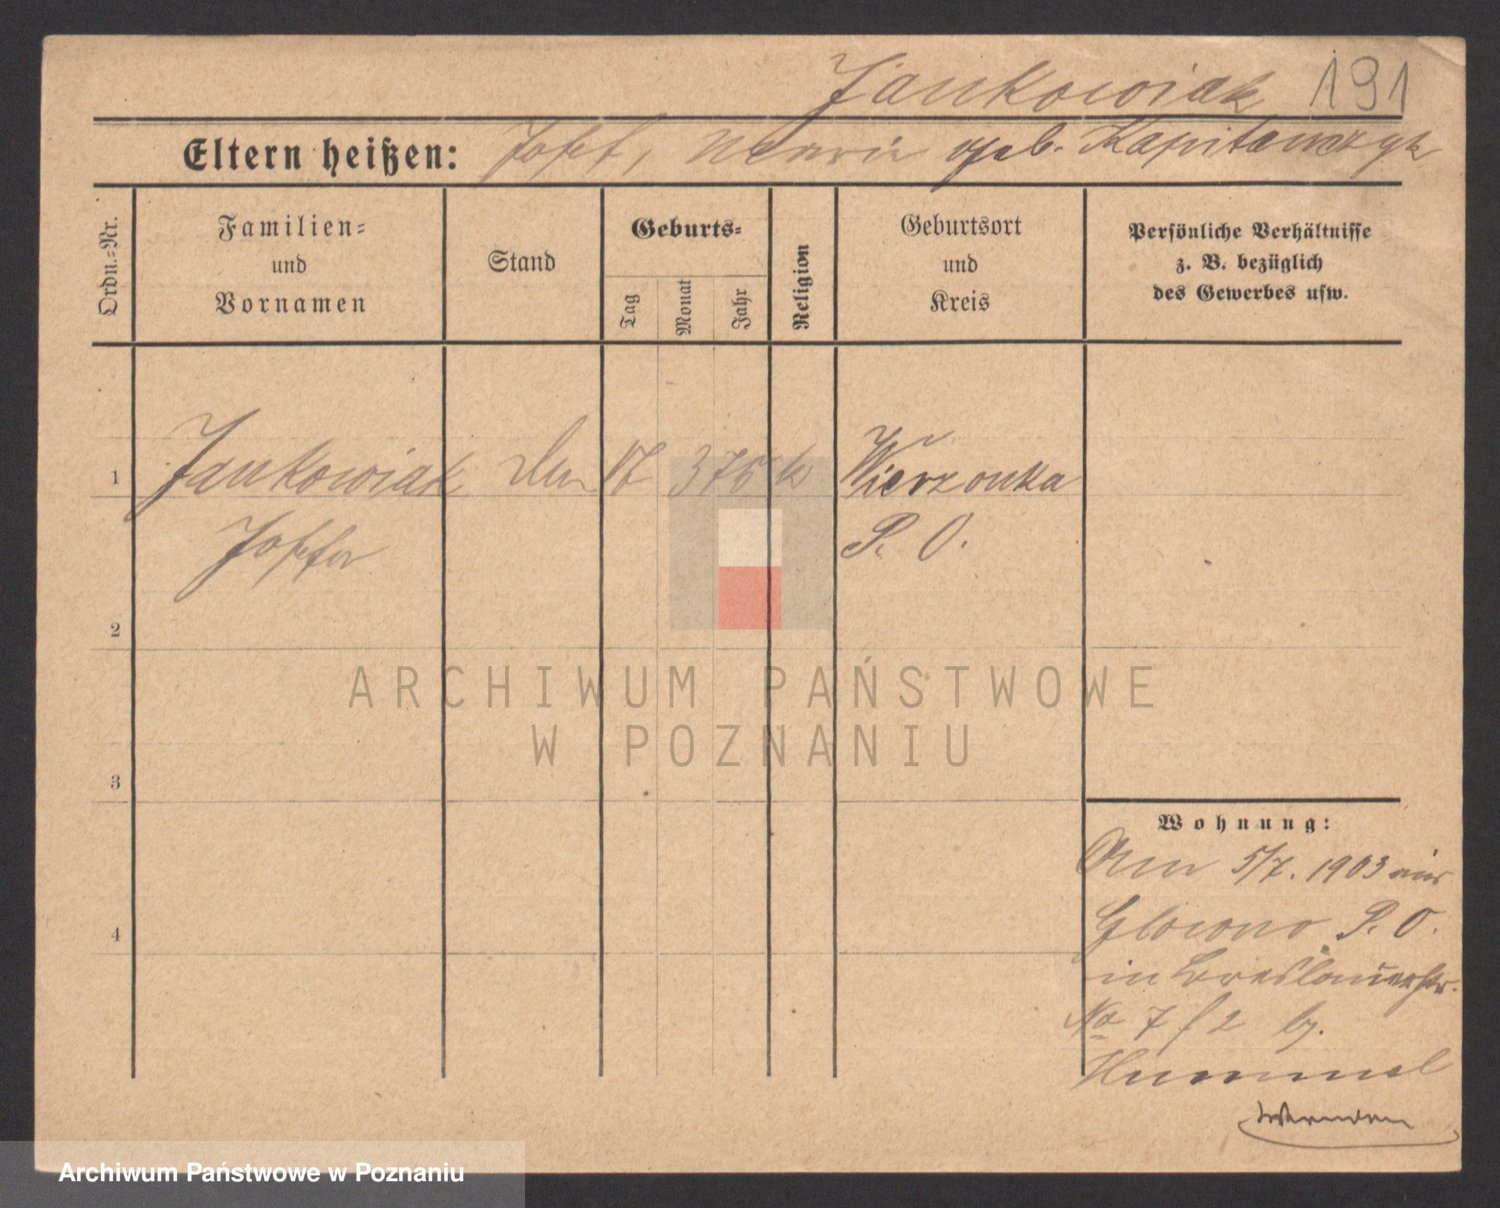 Jankowiak 191
Eltern heißen: Josef, Marie geb. Kapitanczyk
Ordn.-Nr.
Familien-
und
Vornamen
Stand
Geburts-
Tag
Monat
Jahr
Religion
Geburtsort
und
Kreis
Persönliche Verhältnisse
z. B. bezüglich
des Gewerbes usw.
1 Jankowiak 17 3 76 k Wierzonka
P. O.
2
3
4
ARCHIWUM PAŃSTWOWE
W POZNANIU
Wohnung:
Am 5/7. 1903 aus
P. O.
in Breslauerstr.
No 7/2 bj.
Hummel
Archiwum Państwowe w Poznaniu